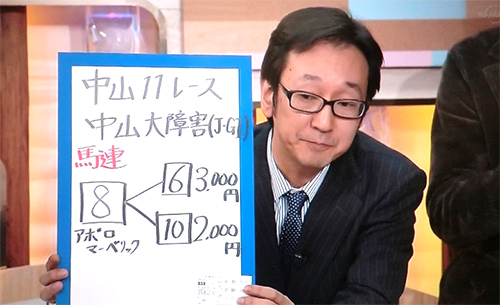 中山11レース
中山大障害(J・G1)
馬連
8
6 3.000円
10 2.000円
アポロ
マーベリック